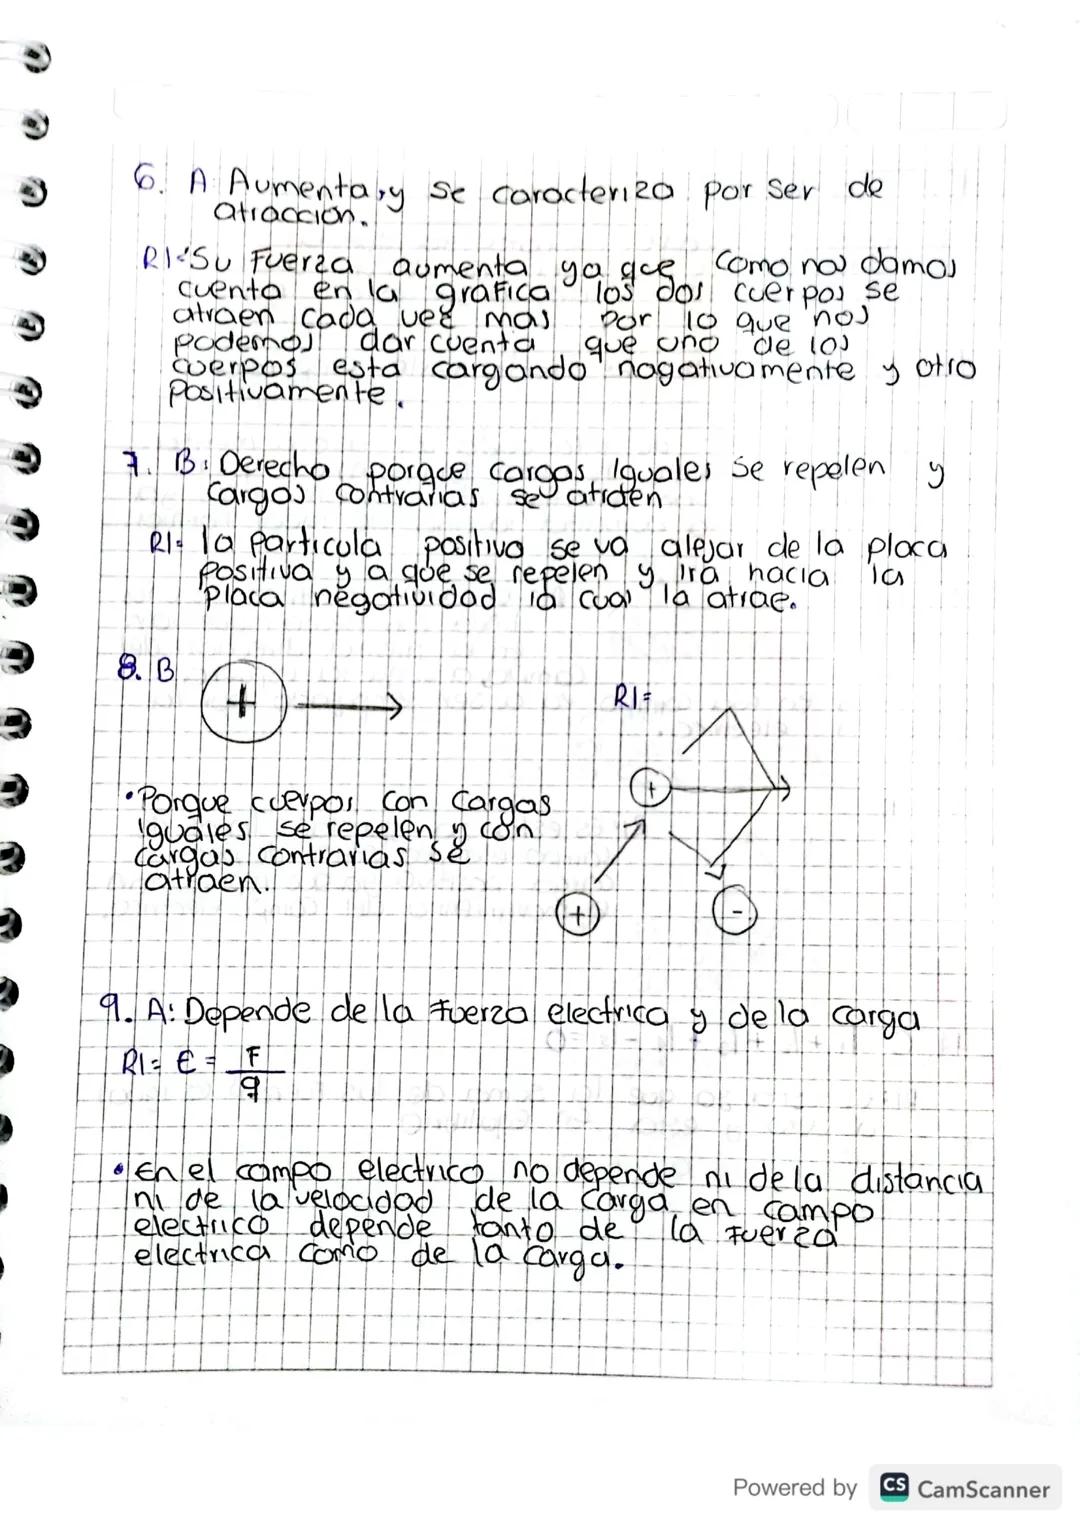 6. A: Aumenta, y se caracteriza por ser de
atraccion.
R1= Su Fuerza aumenta ya que como nos damos
cuenta en la grafica los dos cuerpos se
atraen cada vez mas por lo que nos
podemos dar cuenta que uno de los
cuerpos esta cargando nagativamente y otro
Positivamente.
7. B: Derecho porque cargas Iguales se repelen y
cargas contrarias se atraen
R1= la Particula positiva se va alejar de la placa
Positiva y a que se repelen y ira hacia la
Placa negatividad la cual la atrae.
8. B
+
R1=
+
• Porque cuerpos con cargas
iguales se repelen y con
cargas contrarias se
atraen.
+
-
9. A: Depende de la fuerza electrica y de la carga
R1= E = F
q
• En el campo electrico no depende ni de la distancia
ni de la velocidad de la carga en campo
electrico depende tanto de la Fuerza
electrica como de la carga.
Powered by CS CamScanner